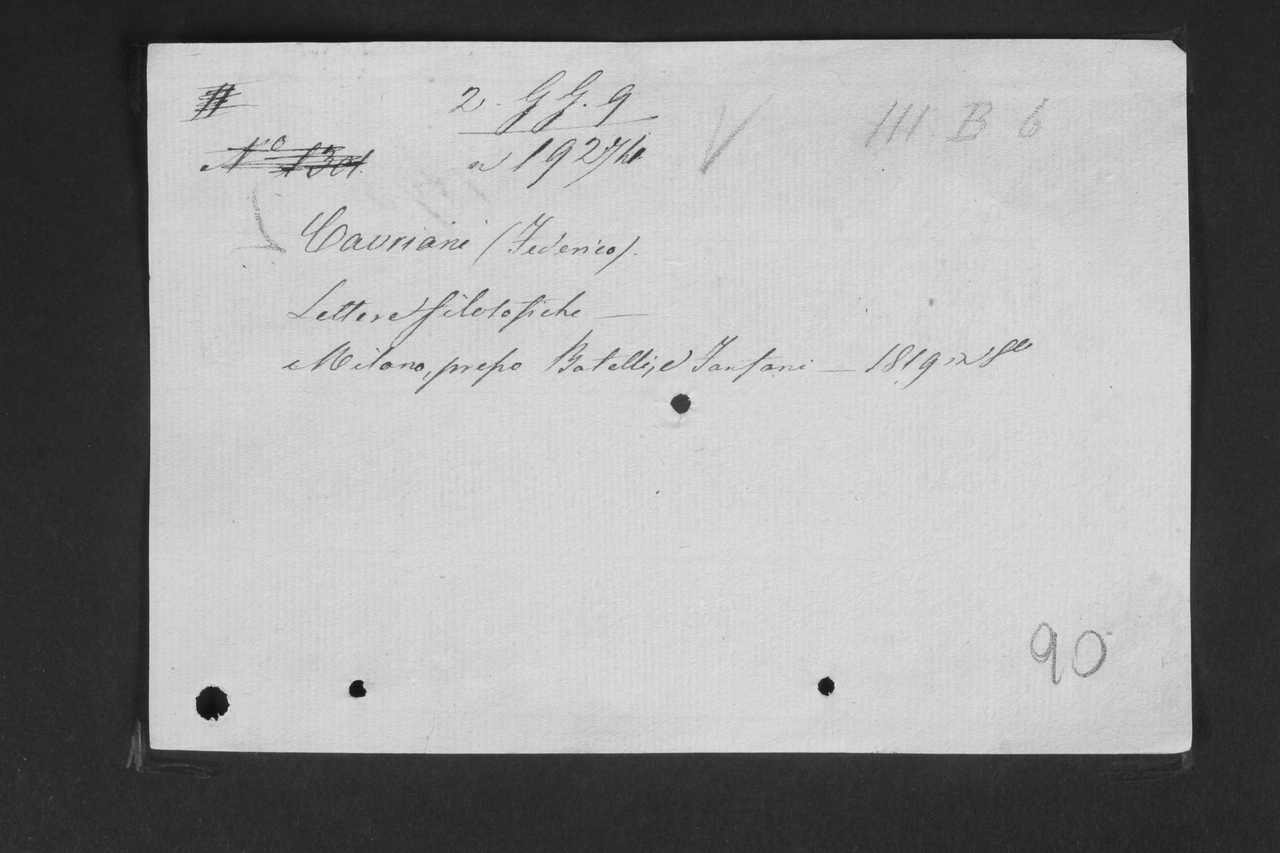 2. G G. 9 III B 6
Nº 1301.
Cavriani (Federico).
Lettere filosofiche —
Milano, presso Batelli, e Fanfani — 1819 in 8º
90